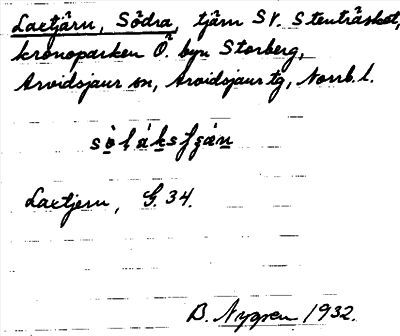 Laxtjärn, Södra, tjärn SV. Stenträsket,
kronoparken Ö. byn Storberg,
Arvidsjaur sn, Arvidsjaur tg, Norrb. l.
Laxtjern, G. 34.
B. Nygren 1932.